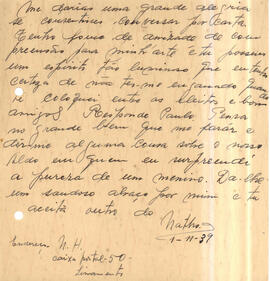 Me darias uma grande alegria
se consentisses conversar por carta.
Tenho fome de amizade de com-
preensão para minha arte e tu possues
um espirito tão luminoso que eu tenho
certeza de não ter-me enganado quando
te coloquei entre os eleitos e bons
amigos! Responde Paulo. Pensa
no grande bem que me farás e
dize-me alguma cousa sobre o nosso
Aldo em quem eu surpreendi
a pureza de um menino. Da-lhe
um saudoso abraço por mim e tu
aceita outro do
Natho
1-11-39
Endereço N. H.
caixa postal-50-
Livramento